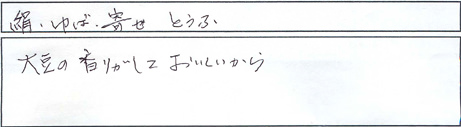 絹、ゆば、寄せ とうふ
大豆の香りがして おいしいから